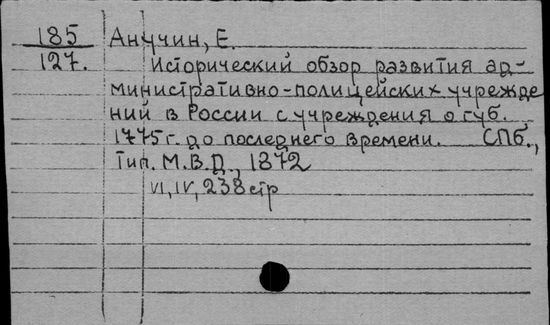 185 Анучин, Е.
127. Исторический обзор развития ад-
министративно-полицейских учрежде
ний в России с учреждения о губ.
1775 г. до последнего времени. СПб.,
Тип. М.В.Д., 1872
VI, IV, 238 стр